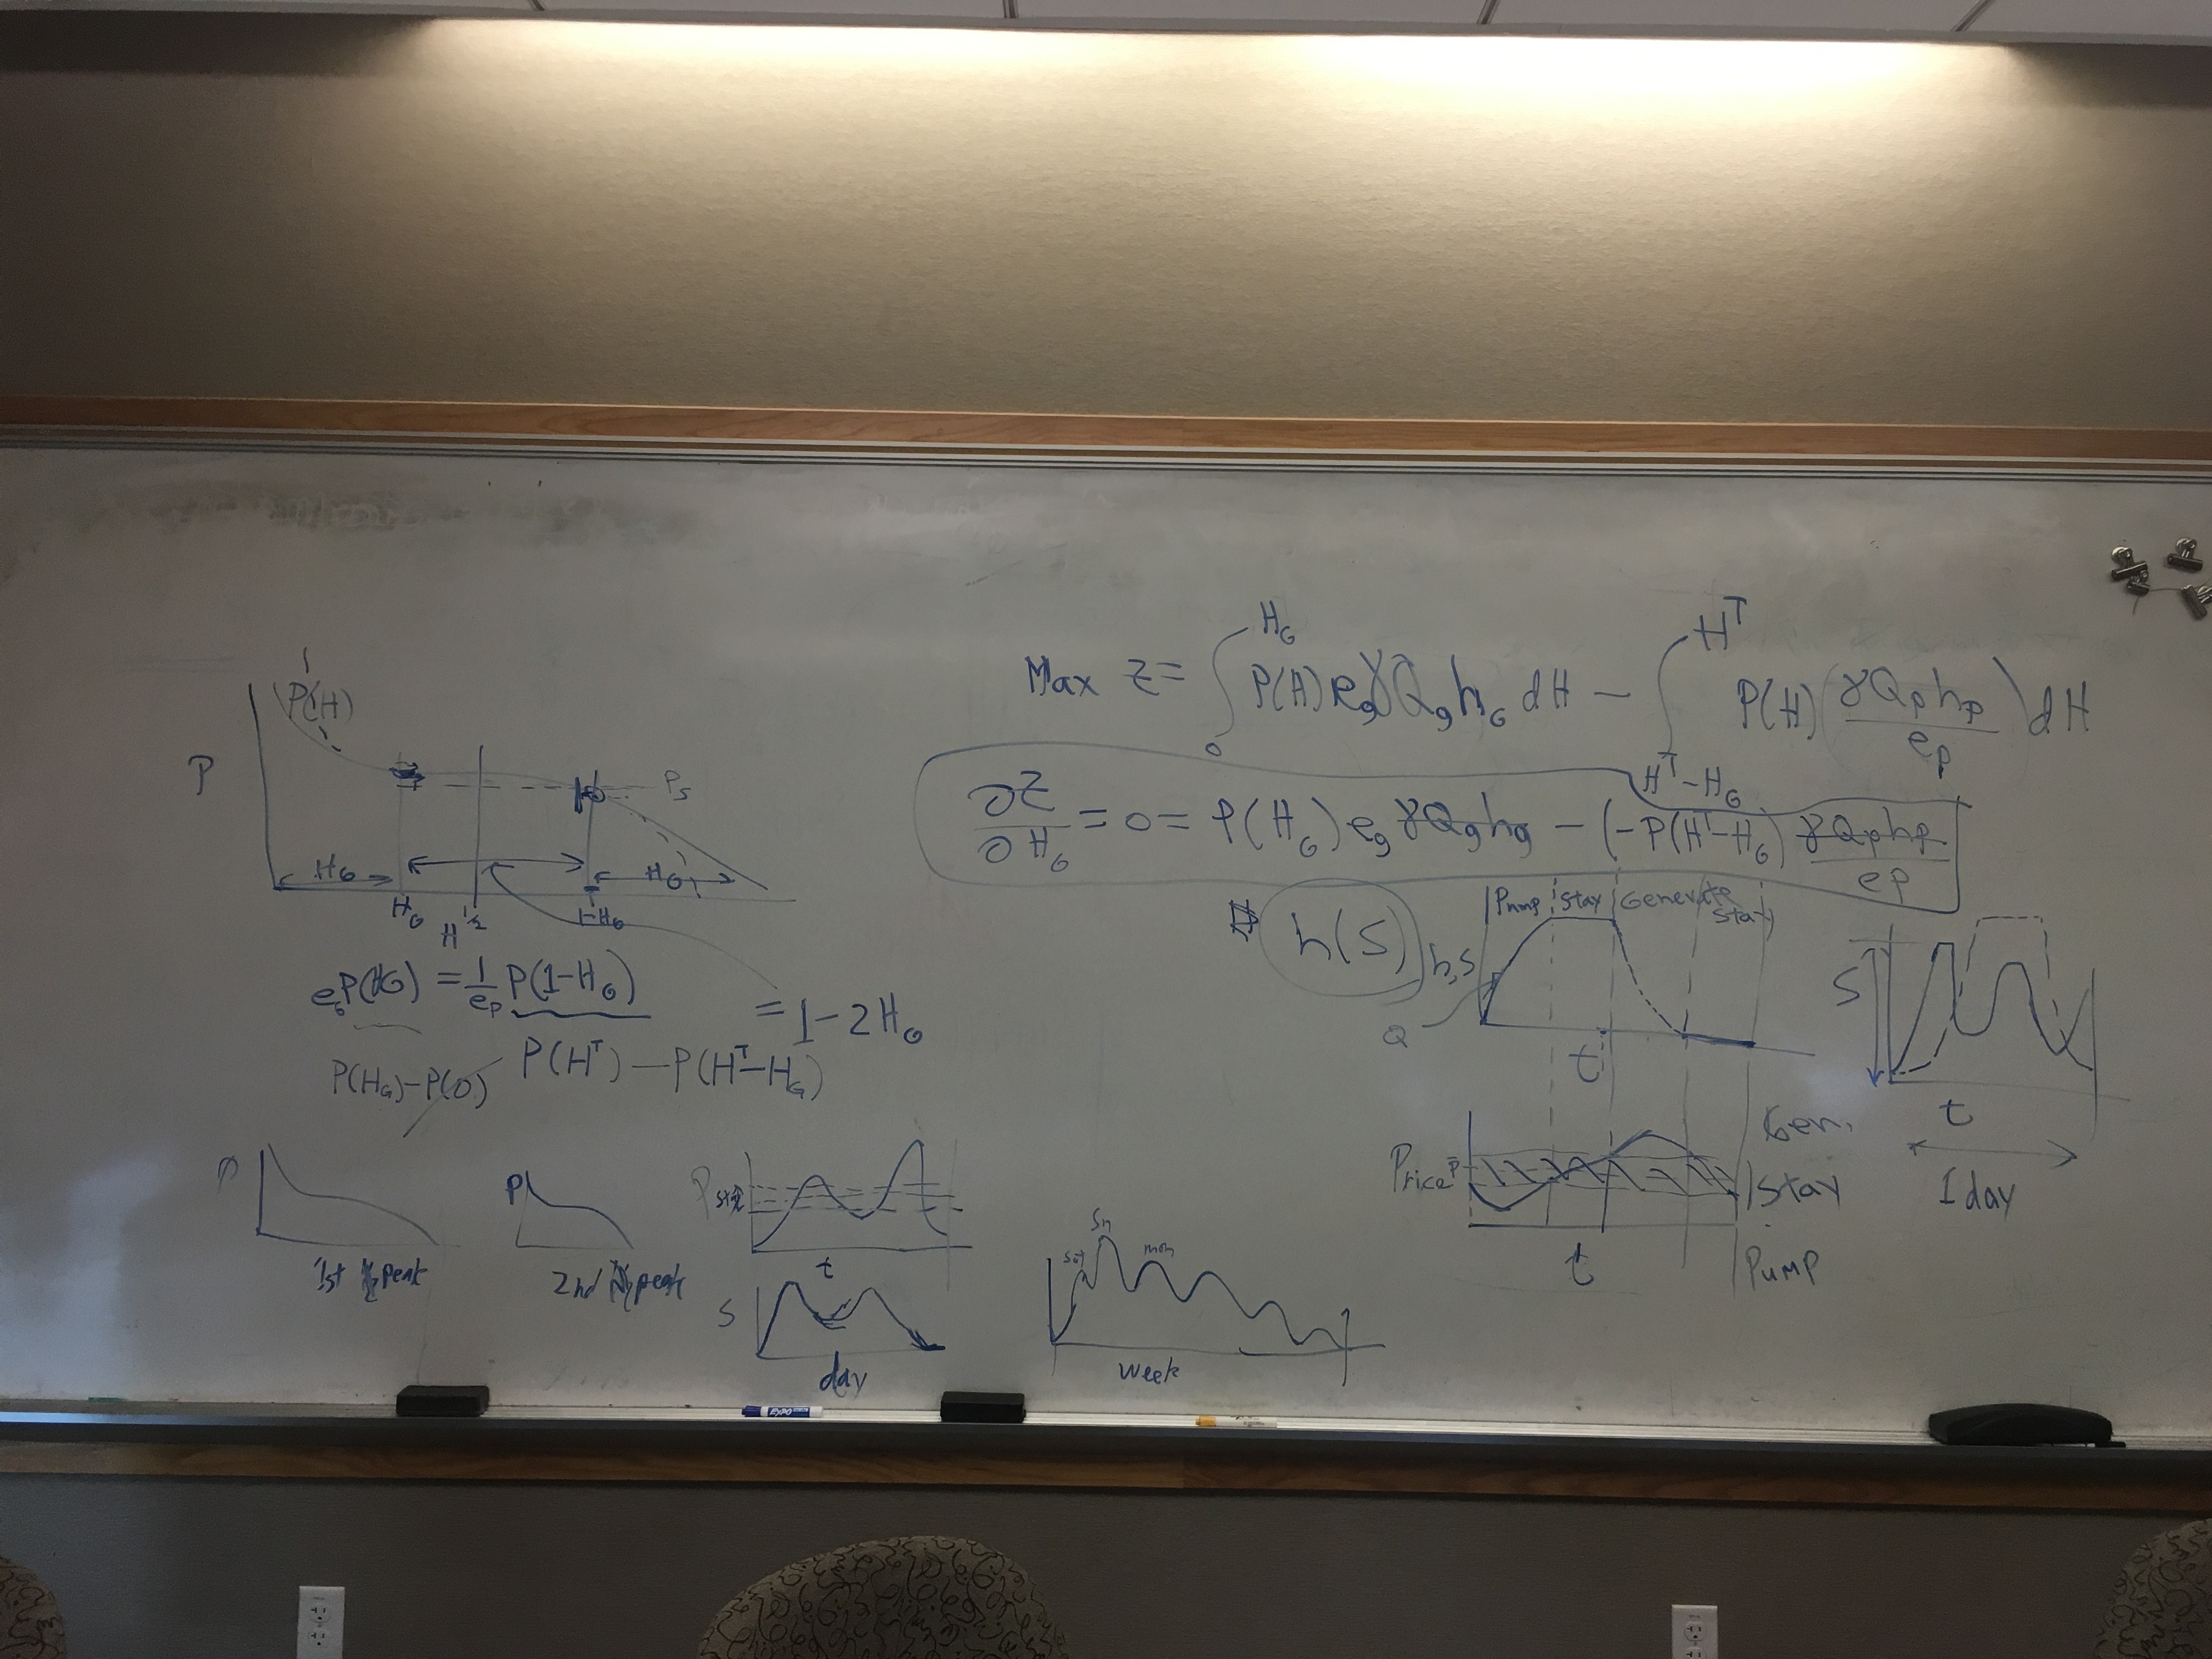 P(H)
P
P_s
H_G
H_G
H_G
H^{1/2}
1-H_G
e_G P(HG) = 1/e_p P(1-H_G)
= 1-2H_G
P(H_G)-P(0) P(H^T) — P(H^T-H_G)
P
1st peak
P
2nd peak
P
t
S
day
Sat
Sn
mon
week
Max Z = ∫_0^{H_G} P(H) e_g γ Q_g h_G dH — ∫_{H^T-H_G}^{H^T} P(H) (γ Q_p h_p / e_p) dH
∂Z/∂H_G = 0 = P(H_G) e_g γ Q_g h_g — (-P(H^T-H_G) γ Q_p h_p / e_p
h(S)
h,S
Pump Stay Generate Stay
Q
t
S
t
1 day
Price P̄
Gen.
Stay
Pump
t
EXPO